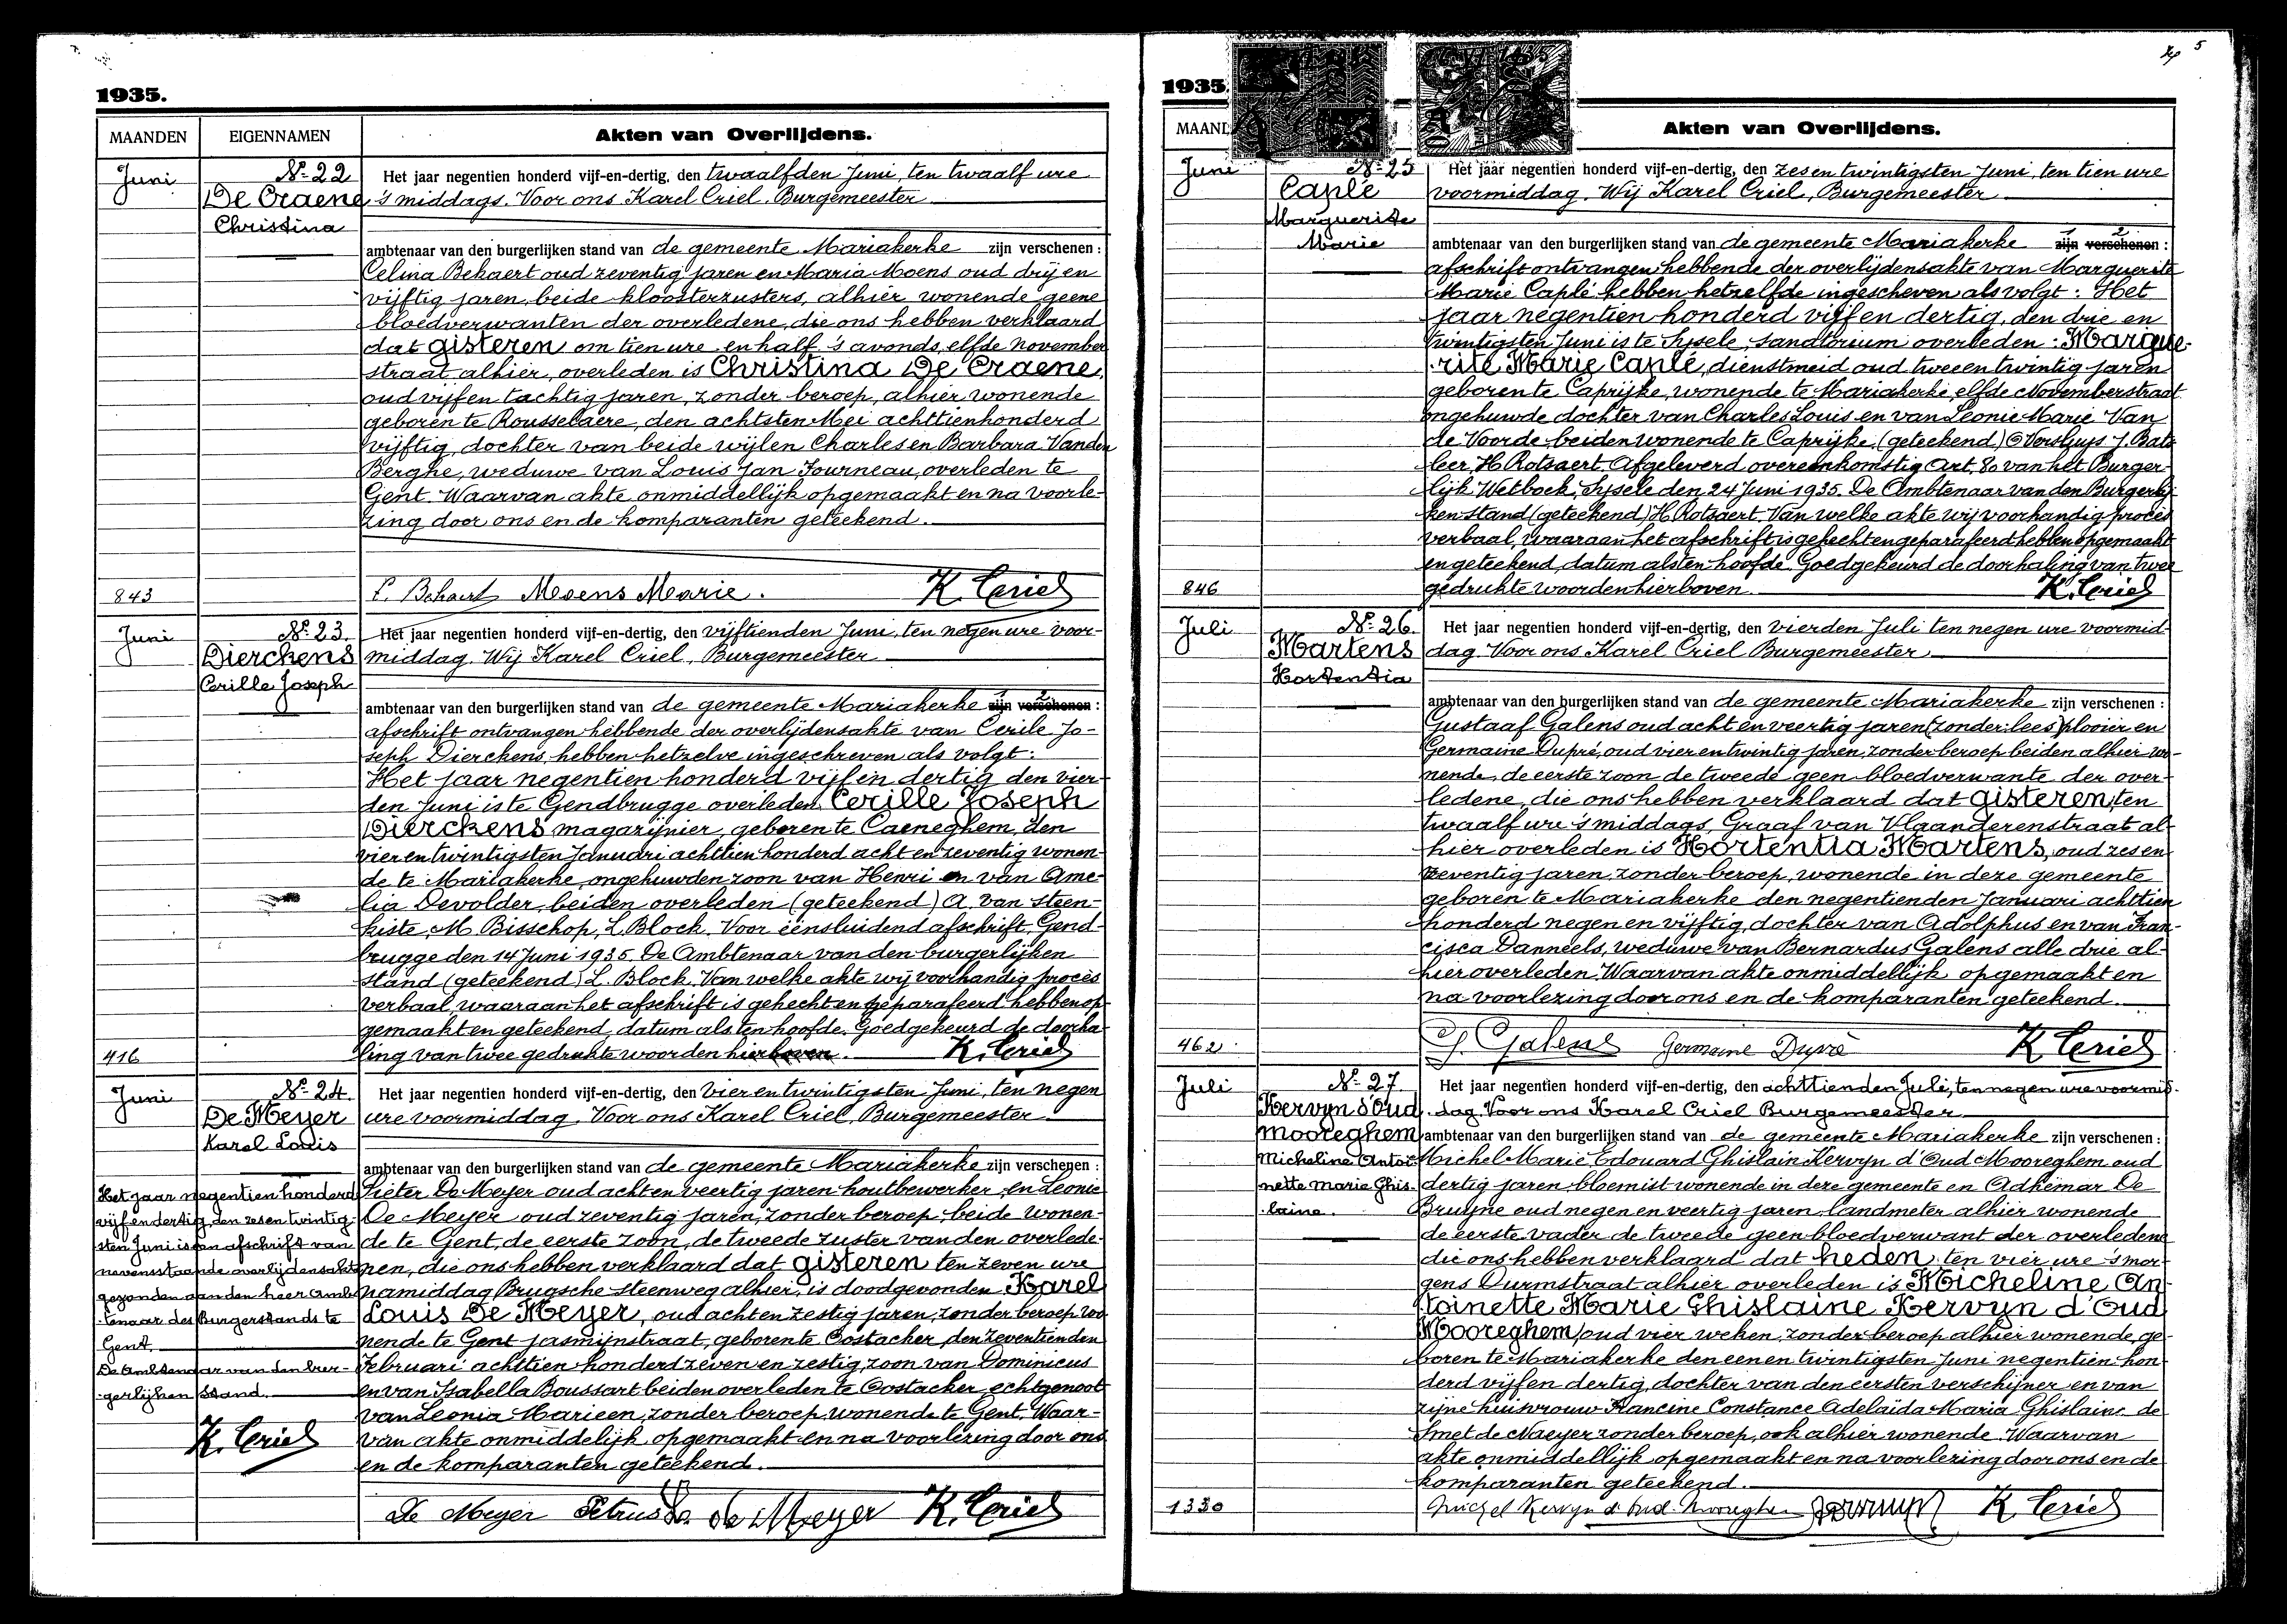 1935.
MAANDEN EIGENNAMEN Akten van Overlijdens.
Juni
843
No 22
De Craene
Christina
Het jaar negentien honderd vijf-en-dertig, den twaalfden Juni, ten twaalf ure
's middags. Voor ons Karel Criel, Burgemeester
ambtenaar van den burgerlijken stand van de gemeente Mariakerke zijn verschenen :
Celina Bekaert oud zeventig jaren en Maria Moens oud drij en
vijftig jaren, beide kloosterzusters, alhier wonende geene
bloedverwanten der overledene, die ons hebben verklaard
dat gisteren om tien ure en half 's avonds, elfde november
straat alhier, overleden is Christina De Craene,
oud vijf en tachtig jaren, zonder beroep, alhier wonende
geboren te Rousselaere, den achtsten Mei achttienhonderd
vijftig, dochter van beide wijlen Charles en Barbara Vanden
Berghe, weduwe van Louis Jan Fourneau, overleden te
Gent. Waarvan akte onmiddellijk opgemaakt en na voorle-
zing door ons en de komparanten geteekend.
C. Bekaert Moens Marie. K. Criel
Juni
416
No 23.
Dierckens
Cerille Joseph
Het jaar negentien honderd vijf-en-dertig, den vijftienden Juni, ten negen ure voor-
middag. Wij Karel Criel, Burgemeester
ambtenaar van den burgerlijken stand van de gemeente Mariakerke zijn verschenen :
afschrift ontvangen hebbende der overlijdensakte van Cerile Jo-
seph Dierckens, hebben hetzelve ingeschreven als volgt:
Het jaar negentien honderd vijf en dertig den vier-
den Juni is te Gendbrugge overleden Cerille Joseph
Dierckens magazijnier, geboren te Caeneghem, den
vier en twintigsten Januari achttien honderd acht en zeventig wonen-
de te Mariakerke, ongehuwden zoon van Henri en van Ame-
lia Devolder, beiden overleden (geteekend) A. van Steen-
kiste, M. Bisschop, L. Block. Voor éénsluidend afschrift, Gend-
brugge den 14 Juni 1935. De Ambtenaar van den burgerlijken
stand (geteekend) L. Block. Van welke akte wij voorhandig procès
verbaal, waaraan het afschrift is gehecht en geparafeerd hebben op-
gemaakt en geteekend, datum als ten hoofde. Goedgekeurd de doorha-
ling van twee gedrukte woorden hierboven. K. Criel
Juni
No 24.
De Meyer
Karel Louis
Het jaar negentien honderd
vijf en dertig, den zes en twintig-
sten Juni is een afschrift van
nevensstaande overlijdensakte
gezonden aan den heer Ambe-
tenaar des Burgerstands te
Gent.
De Ambtenaar van den bur-
gerlijken Stand.
K. Criel
Het jaar negentien honderd vijf-en-dertig, den vier en twintigsten Juni, ten negen
ure voormiddag. Voor ons Karel Criel, Burgemeester
ambtenaar van den burgerlijken stand van de gemeente Mariakerke zijn verschenen :
Pieter De Meyer oud acht en veertig jaren houtbewerker en Leonie
De Meyer oud zeventig jaren, zonder beroep, beide wonen-
de te Gent, de eerste zoon, de tweede zuster van den overlede-
nen, die ons hebben verklaard dat gisteren ten zeven ure
namiddag Brugsche steenweg alhier, is doodgevonden Karel
Louis De Meyer, oud acht en zestig jaren, zonder beroep, wo-
nende te Gent Jasmijnstraat, geboren te Oostacker, den zeventienden
Februari achttien honderd zeven en zestig, zoon van Dominicus
en van Isabella Boussart beiden overleden te Oostacker, echtgenoot
van Leonia Marieen, zonder beroep, wonende te Gent. Waar-
van akte onmiddelijk opgemaakt en na voorlezing door ons
en de komparanten geteekend.
De Meyer Petrus De Meyer K. Criel
5
1935
MAAND Akten van Overlijdens.
Juni
846
No 25
Caplé
Marguerite
Marie
Het jaar negentien honderd vijf-en-dertig, den zes en twintigsten Juni, ten tien ure
voormiddag. Wij Karel Criel, Burgemeester
ambtenaar van den burgerlijken stand van de gemeente Mariakerke zijn verschenen :
afschrift ontvangen hebbende der overlijdensakte van Marguerite
Marie Caplé hebben hetzelfde ingescheven als volgt: Het
jaar negentien honderd vijf en dertig, den drie en
twintigsten Juni is te Sysele, sanatorium overleden: Margue-
rite Marie Caplé, dienstmeid oud twee en twintig jaren
geboren te Caprijke, wonende te Mariakerke elfde Novemberstraat
ongehuwde dochter van Charles Louis en van Leonie Marie Van
de Voorde beiden wonende te Caprijke, (geteekend) O Versluys J. Bate
leer, H. Rotsaert. Afgeleverd overeenkomstig Art. 80 van het Burger-
lijk Wetboek, Sysele den 24 Juni 1935. De Ambtenaar van den Burgerlij
ken stand (geteekend) H. Rotsaert. Van welke akte wij voorhandig procès
verbaal, waaraan het afschrift is gehecht en geparafeerd hebben opgemaakt
en geteekend, datum als ten hoofde. Goedgekeurd de doorhaling van twee
gedrukte woorden hierboven. K. Criel
Juli
462
No 26.
Martens
Hortentia
Het jaar negentien honderd vijf-en-dertig, den vierden Juli ten negen ure voormid-
dag. Voor ons Karel Criel Burgemeester
ambtenaar van den burgerlijken stand van de gemeente Mariakerke zijn verschenen :
Gustaaf Galens oud acht en veertig jaren (zonder: lees) plooier en
Germaine Dupré, oud vier en twintig jaren, zonder beroep beiden alhier wo-
nende, de eerste zoon de tweede geen bloedverwante der over-
ledene, die ons hebben verklaard dat gisteren, ten
twaalf ure 's middags, Graaf van Vlaanderenstraat al-
hier overleden is Hortentia Martens, oud zes en
zeventig jaren, zonder beroep, wonende in deze gemeente
geboren te Mariakerke den negentienden Januari achttien
honderd negen en vijftig, dochter van Adolphus en van Fran-
cisca Danneels, weduwe van Bernardus Galens alle drie al-
hier overleden. Waarvan akte onmiddellijk opgemaakt en
na voorlezing door ons en de komparanten geteekend.
G. Galens Germaine Dupré K. Criel
Juli
1330
No 27
Kervyn d'Oud
Mooreghem
Micheline Antoi-
nette Marie Ghis-
laine.
Het jaar negentien honderd vijf-en-dertig, den achttienden Juli, ten negen ure voormid-
dag. Voor ons Karel Criel Burgemeester
ambtenaar van den burgerlijken stand van de gemeente Mariakerke zijn verschenen :
Michel Marie Edouard Ghislain Kervyn d'Oud Mooreghem oud
dertig jaren, bloemist wonende in deze gemeente en Adhémar De
Bruyne oud negen en veertig jaren, landmeter alhier wonende
de eerste vader de tweede geen bloedverwant der overledene
die ons hebben verklaard dat heden, ten vier ure 's mor-
gens Durmstraat alhier overleden is Micheline An-
toinette Marie Ghislaine Kervyn d'Oud
Mooreghem, oud vier weken, zonder beroep alhier wonende, ge-
boren te Mariakerke den een en twintigsten Juni negentien hon-
derd vijf en dertig, dochter van den eersten verschijner en van
zijne huisvrouw Francine Constance Adelaïda Maria Ghislaine de
Smet de Naeyer zonder beroep, ook alhier wonende. Waarvan
akte onmiddellijk opgemaakt en na voorlezing door ons en de
komparanten geteekend.
Michel Kervyn d'Oud Mooreghem K. Criel